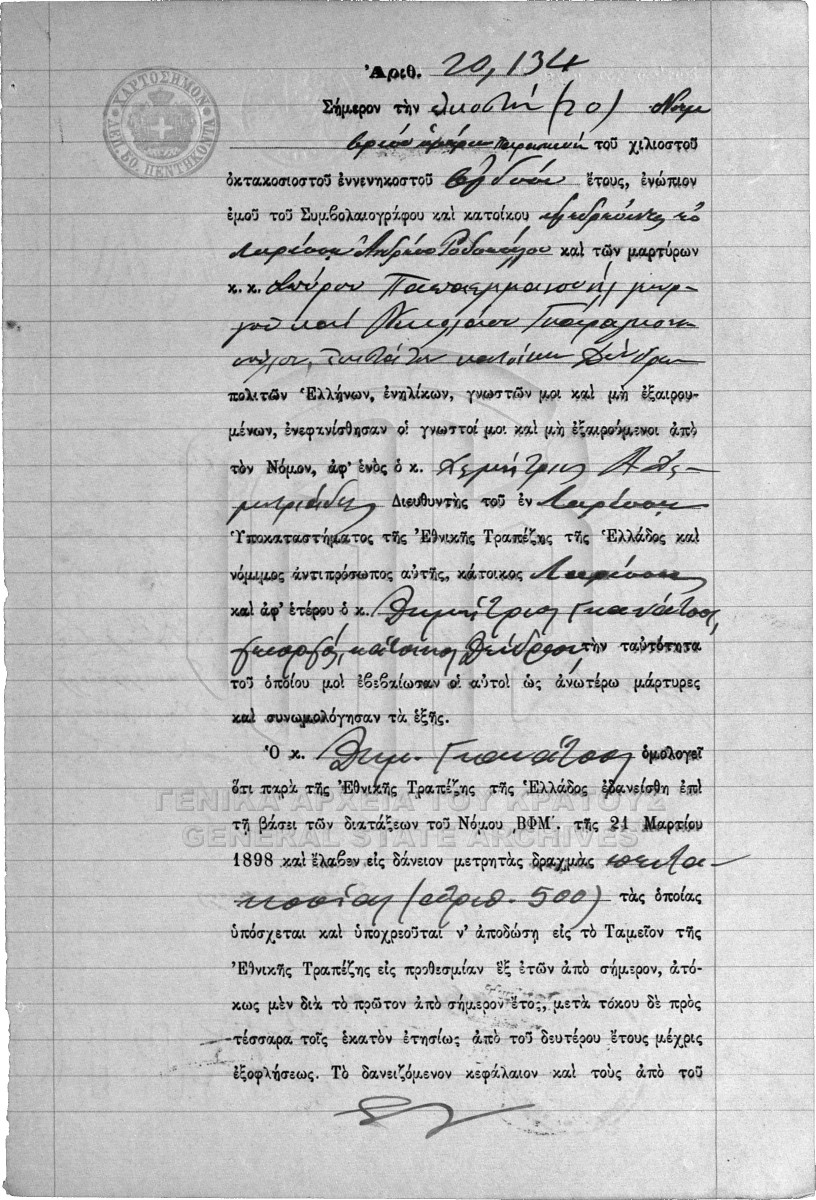 ΧΑΡΤΟΣΗΜΟΝ
ΛΕΠ. 50. ΠΕΝΤΗΚΟΝΤΑ
Ἀριθ. 20,134
Σήμερον τὴν εἰκοστὴν (20) Νοεμ
βρίου ἡμέραν Παρασκευὴ τοῦ χιλιοστοῦ
ὀκτακοσιοστοῦ ἐννενηκοστοῦ ὀγδόου ἔτους, ἐνώπιον
ἐμοῦ τοῦ Συμβολαιογράφου καὶ κατοίκου ἑδρεύοντος
Λαρίσσης Ἀνδρέου Ροδοπούλου καὶ τῶν μαρτύρων
κ. κ. Σπύρου
καὶ Νικολάου
κατοίκων
πολιτῶν Ἑλλήνων, ἐνηλίκων, γνωστῶν μοι καὶ μὴ ἐξαιρου-
μένων, ἐνεφανίσθησαν οἱ γνωστοί μοι καὶ μὴ ἐξαιρούμενοι ἀπὸ
τὸν Νόμον, ἀφ' ἑνὸς ὁ κ. Δημήτριος
Διευθυντὴς τοῦ ἐν Λαρίσσῃ
Ὑποκαταστήματος τῆς Ἐθνικῆς Τραπέζης τῆς Ἑλλάδος καὶ
νόμιμος ἀντιπρόσωπος αὐτῆς, κάτοικος Λαρίσσης
καὶ ἀφ' ἑτέρου ὁ κ. Δημήτριος Γκανάτσος,
γεωργός, κάτοικος Δένδρων τὴν ταυτότητα
τοῦ ὁποίου μοὶ ἐβεβαίωσαν οἱ αὐτοὶ ὡς ἀνωτέρω μάρτυρες
καὶ συνωμολόγησαν τὰ ἑξῆς.
Ὁ κ. Δημ. Γκανάτσος ὁμολογεῖ
ὅτι παρὰ τῆς Ἐθνικῆς Τραπέζης τῆς Ἑλλάδος ἐδανείσθη ἐπὶ
ΓΕΝΙΚΑ ΑΡΧΕΙΑ ΤΟΥ ΚΡΑΤΟΥΣ
τῇ βάσει τῶν διατάξεων τοῦ Νόμου ͵ΒΦΜʹ. τῆς 21 Μαρτίου
GENERAL STATE ARCHIVES
1898 καὶ ἔλαβεν εἰς δάνειον μετρητὰς δραχμὰς πεντα-
κοσίας (ἀριθ. 500) τὰς ὁποίας
ὑπόσχεται καὶ ὑποχρεοῦται ν' ἀποδώσῃ εἰς τὸ Ταμεῖον τῆς
Ἐθνικῆς Τραπέζης εἰς προθεσμίαν ἓξ ἐτῶν ἀπὸ σήμερον, ἀτό-
κως μὲν διὰ τὸ πρῶτον ἀπὸ σήμερον ἔτος, μετὰ τόκου δὲ πρὸς
τέσσαρα τοῖς ἑκατὸν ἐτησίως ἀπὸ τοῦ δευτέρου ἔτους μέχρις
ἐξοφλήσεως. Τὸ δανειζόμενον κεφάλαιον καὶ τοὺς ἀπὸ τοῦ